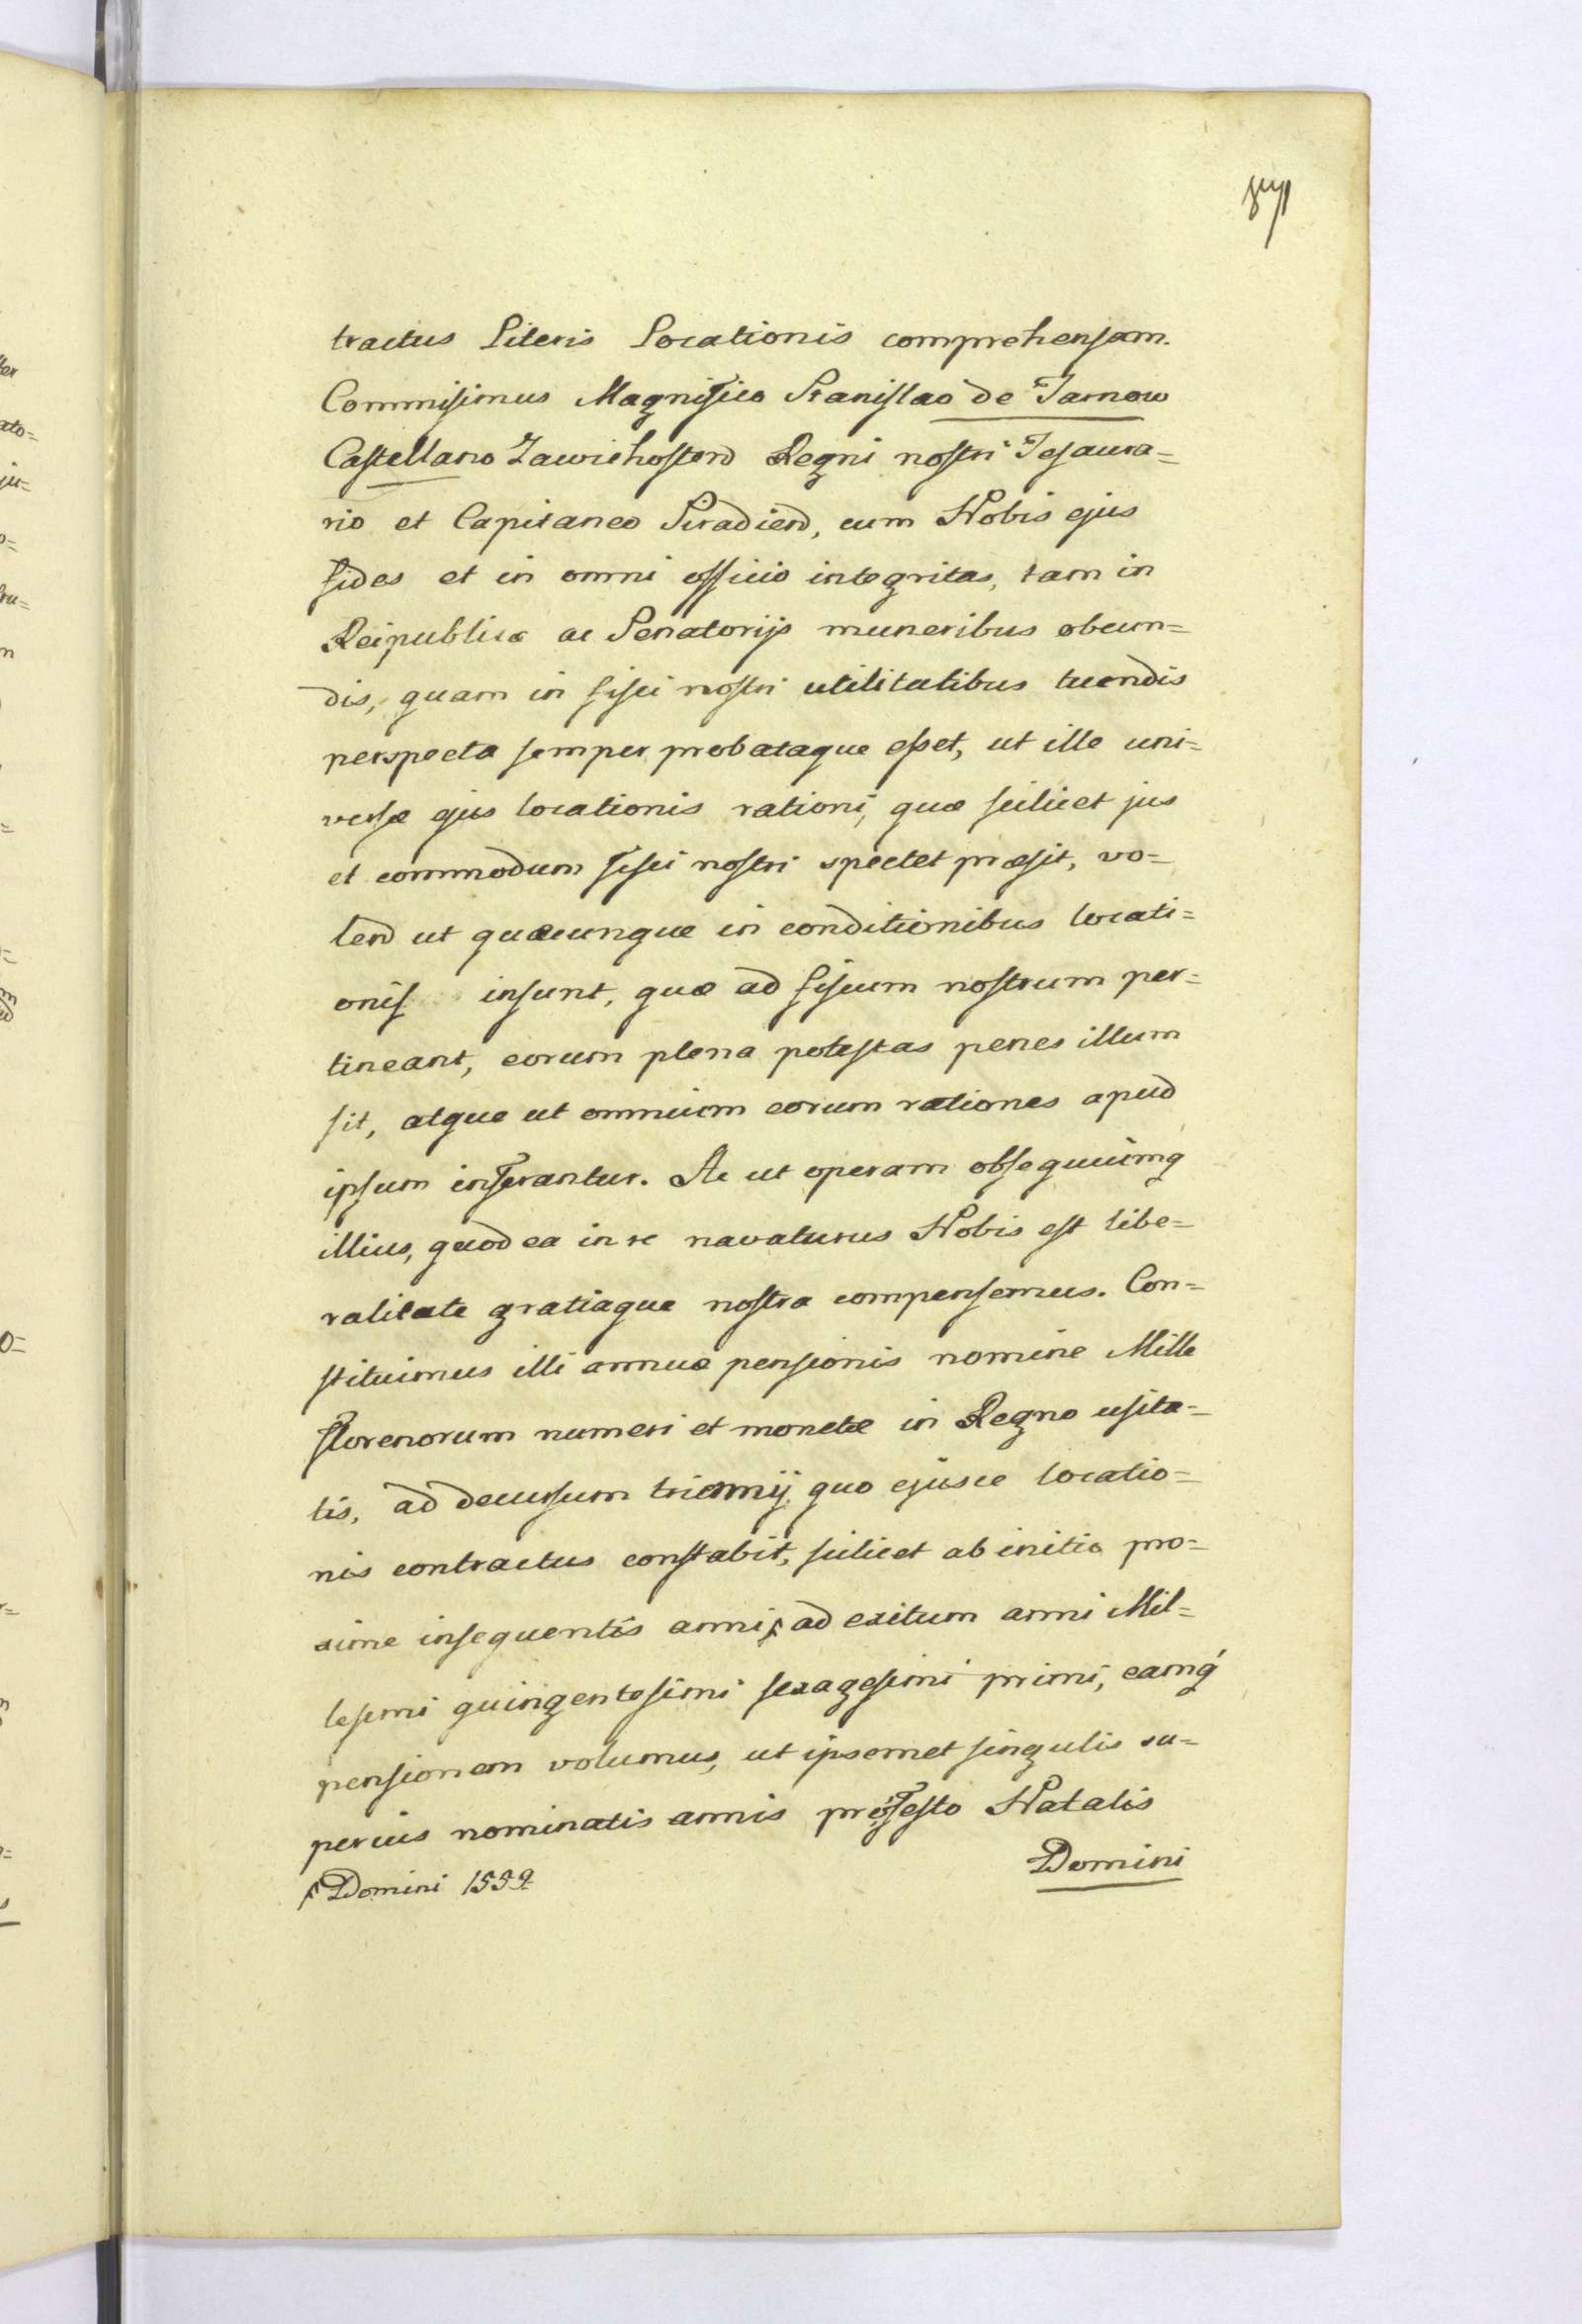 tractus Literis Locationis comprehensam.
Commisimus Magnifico Stanislao de Tarnow
Castellano Zawichosten Regni nostri Tesaura=
rio et Capitaneo Siradien, cum Nobis ejus
fides et in omni officio integritas, tam in
Reipublicæ ac Senatorijs muneribus obeun=
dis, quam in fisci nostri utilitatibus tuendis
perspecta semper probataque esset, ut ille uni=
versæ ejus locationis rationi, quæ scilicet jus
et commodum fisci nostri spectet præsit, vo=
len ut quæcunque in conditionibus locati=
onis insunt, quæ ad fiscum nostrum per=
tineant, eorum plena potestas penes illum
sit, atque ut omnium eorum rationes apud
ipsum inferantur. Ac ut operam obsequiumq
illius, quod ea in re navaturus Nobis est libe=
ralitate gratiaque nostra compensemus. Con=
stituimus illi annuæ pensionis nomine Mille
florenorum numeri et monetæ in Regno usita=
tis, ad decursum triennij quo ejusce locatio=
nis contractus constabit, scilicet ab initio pro=
xime insequentis anni ad exitum anni Mil=
lesimi quingentesimi sexagesimi primi, eamq́
pensionem volumus, ut ipsemet singulis su=
perius nominatis annis pro festo Natalis
Domini
Domini 1559